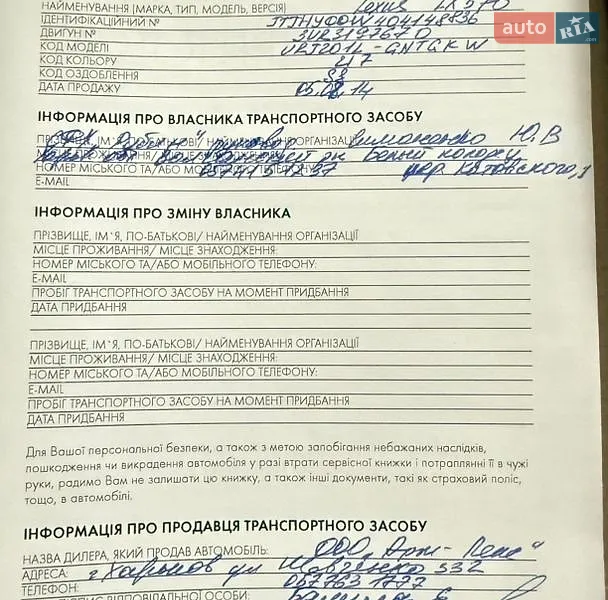 НАЙМЕНУВАННЯ (МАРКА, ТИП, МОДЕЛЬ, ВЕРСІЯ) Lexus LX570
ІДЕНТИФІКАЦІЙНИЙ N° JTJHY00W404148836
auto RIA.com
ДВИГУН N° 3UR3197670
КОД МОДЕЛІ URJ201L-GNTGKW
КОД КОЛЬОРУ 217
КОД ОЗДОБЛЕННЯ
ДАТА ПРОДАЖУ 14
ІНФОРМАЦІЯ ПРО ВЛАСНИКА ТРАНСПОРТНОГО ЗАСОБУ
ПРІЗВИЩЕ, ІМ`Я, ПО-БАТЬКОВІ/ НАЙМЕНУВАННЯ ОРГАНІЗАЦІЇ Ю.В
МІСЦЕ ПРОЖИВАННЯ/ МІСЦЕ ЗНАХОДЖЕННЯ:
НОМЕР МІСЬКОГО ТА/АБО МОБІЛЬНОГО ТЕЛЕФОНУ:
E-MAIL
ІНФОРМАЦІЯ ПРО ЗМІНУ ВЛАСНИКА
ПРІЗВИЩЕ, ІМ`Я, ПО-БАТЬКОВІ/ НАЙМЕНУВАННЯ ОРГАНІЗАЦІЇ
МІСЦЕ ПРОЖИВАННЯ/ МІСЦЕ ЗНАХОДЖЕННЯ:
НОМЕР МІСЬКОГО ТА/АБО МОБІЛЬНОГО ТЕЛЕФОНУ:
E-MAIL
ПРОБІГ ТРАНСПОРТНОГО ЗАСОБУ НА МОМЕНТ ПРИДБАННЯ
ДАТА ПРИДБАННЯ
ПРІЗВИЩЕ, ІМ`Я, ПО-БАТЬКОВІ/ НАЙМЕНУВАННЯ ОРГАНІЗАЦІЇ
МІСЦЕ ПРОЖИВАННЯ/ МІСЦЕ ЗНАХОДЖЕННЯ:
НОМЕР МІСЬКОГО ТА/АБО МОБІЛЬНОГО ТЕЛЕФОНУ:
E-MAIL
ПРОБІГ ТРАНСПОРТНОГО ЗАСОБУ НА МОМЕНТ ПРИДБАННЯ
ДАТА ПРИДБАННЯ
Для Вашої персональної безпеки, а також з метою запобігання небажаних наслідків,
пошкодження чи викрадення автомобіля у разі втрати сервісної книжки і потраплянні її в чужі
руки, радимо Вам не залишати цю книжку, а також інші документи, такі як страховий поліс,
тощо, в автомобілі.
ІНФОРМАЦІЯ ПРО ПРОДАВЦЯ ТРАНСПОРТНОГО ЗАСОБУ
НАЗВА ДИЛЕРА, ЯКИЙ ПРОДАВ АВТОМОБІЛЬ: ООО
АДРЕСА: г. Харьков ул Шевченко 332
ТЕЛЕФОН: 057763 1777
ПІДПИС ВІДПОВІДАЛЬНОЇ ОСОБИ: